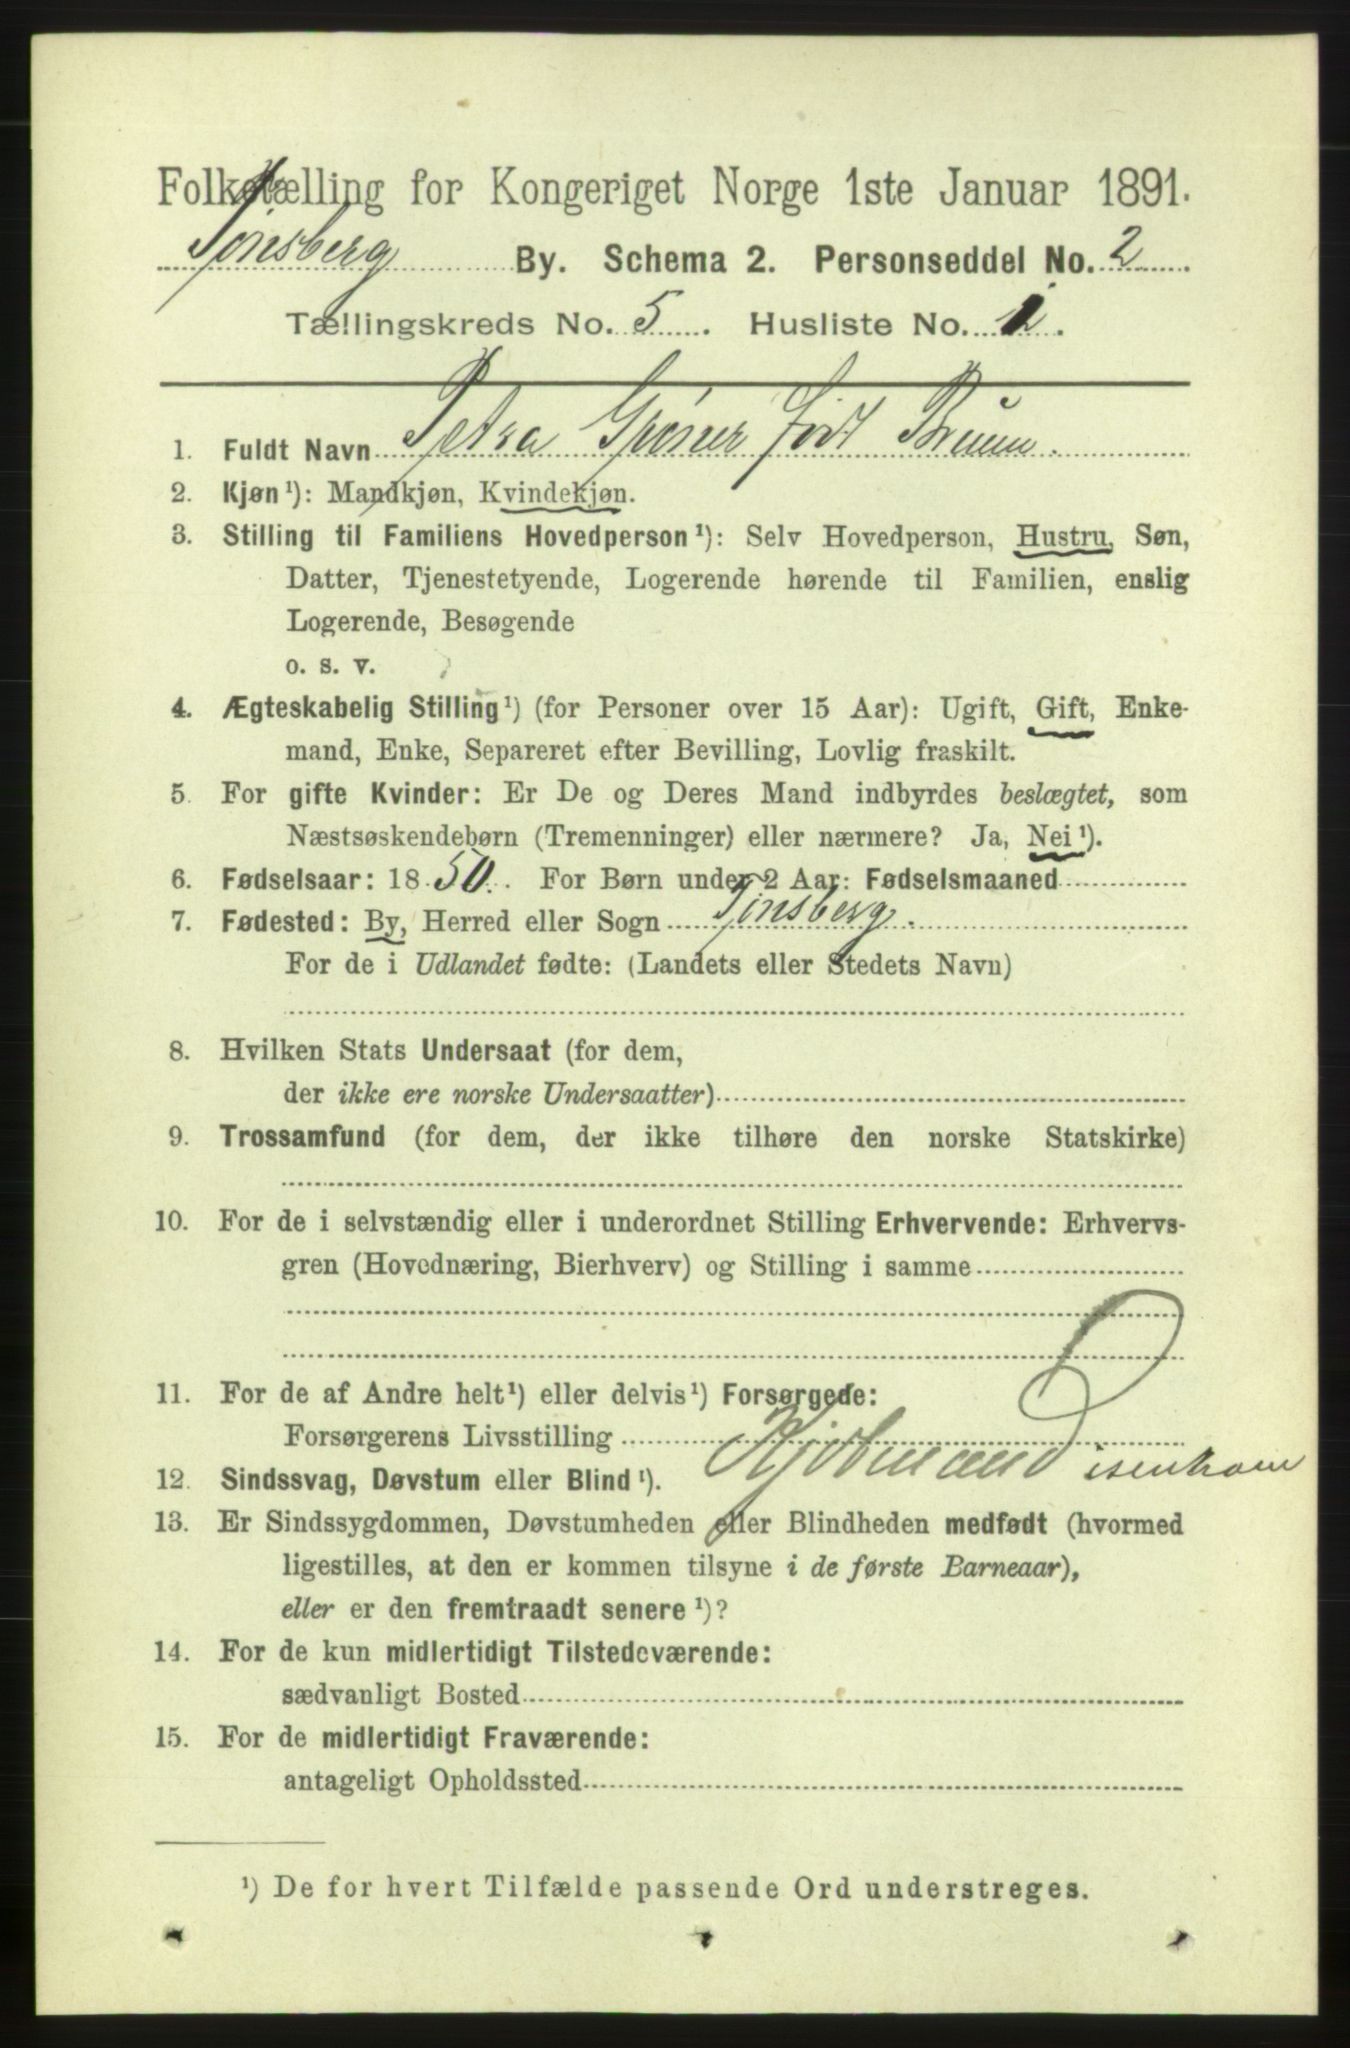 Folketælling for Kongeriget Norge 1ste Januar 1891.
Tønsberg By. Schema 2. Personseddel No. 2
Tællingskreds No. 5. Husliste No. 1.
1. Fuldt Navn Petra Grøner født Bruun.
2. Kjøn ¹): Mandkjøn, Kvindekjøn.
3. Stilling til Familiens Hovedperson ¹): Selv Hovedperson, Hustru, Søn,
Datter, Tjenestetyende, Logerende hørende til Familien, enslig
Logerende, Besøgende
o. s. v.
4. Ægteskabelig Stilling ¹) (for Personer over 15 Aar): Ugift, Gift, Enke-
mand, Enke, Separeret efter Bevilling, Lovlig fraskilt.
5. For gifte Kvinder: Er De og Deres Mand indbyrdes beslægtet, som
Næstsøskendebørn (Tremenninger) eller nærmere? Ja, Nei ¹).
6. Fødselsaar: 1850. For Børn under 2 Aar: Fødselsmaaned
7. Fødested: By, Herred eller Sogn Tønsberg.
For de i Udlandet fødte: (Landets eller Stedets Navn)
8. Hvilken Stats Undersaat (for dem,
der ikke ere norske Undersaatter)
9. Trossamfund (for dem, der ikke tilhøre den norske Statskirke)
10. For de i selvstændig eller i underordnet Stilling Erhvervende: Erhvervs-
gren (Hovednæring, Bierhverv) og Stilling i samme
11. For de af Andre helt ¹) eller delvis ¹) Forsørgede:
Forsørgerens Livsstilling Kjøbmand isenkram
12. Sindssvag, Døvstum eller Blind ¹).
13. Er Sindssygdommen, Døvstumheden eller Blindheden medfødt (hvormed
ligestilles, at den er kommen tilsyne i de første Barneaar),
eller er den fremtraadt senere ¹)?
14. For de kun midlertidigt Tilstedeværende:
sædvanligt Bosted
15. For de midlertidigt Fraværende:
antageligt Opholdssted
¹) De for hvert Tilfælde passende Ord understreges.